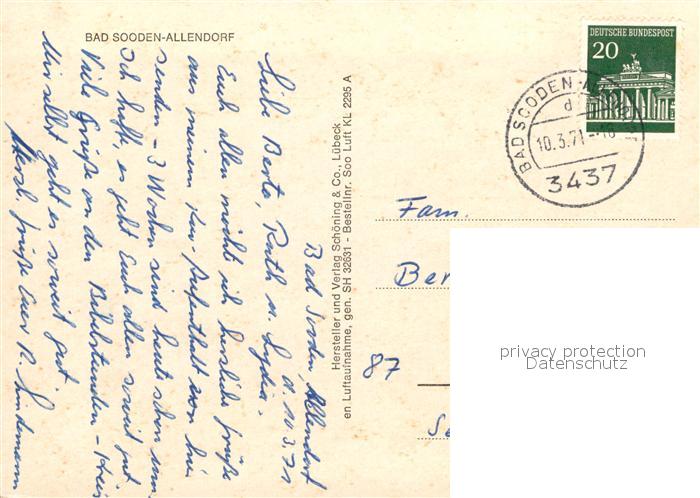 BAD SOODEN-ALLENDORF
Bad Sooden, Allendorf
d. 10.3.71
Liebe Berta, Ruth u. Lydia.
Euch allen möchte ich herzliche Grüße
aus meinem Kur-Aufenthalt von hier
senden - 3 Wochen sind heute schon um.
Ich hoffe, es geht Euch allen soweit gut.
Viele Grüße an den Bibelstunden-Kreis
Mir selbst geht es soweit gut.
Herzl. Grüße Euer R. Lindemann
Hersteller und Verlag Schöning & Co., Lübeck
en Luftaufnahme, gen. SH 32631 - Bestellnr. Soo Luft KL 2295 A
DEUTSCHE BUNDESPOST
20
BAD SOODEN-ALLENDORF
d
10.3.71-18
3437
Fam.
Ber
87
Se
privacy protection
Datenschutz